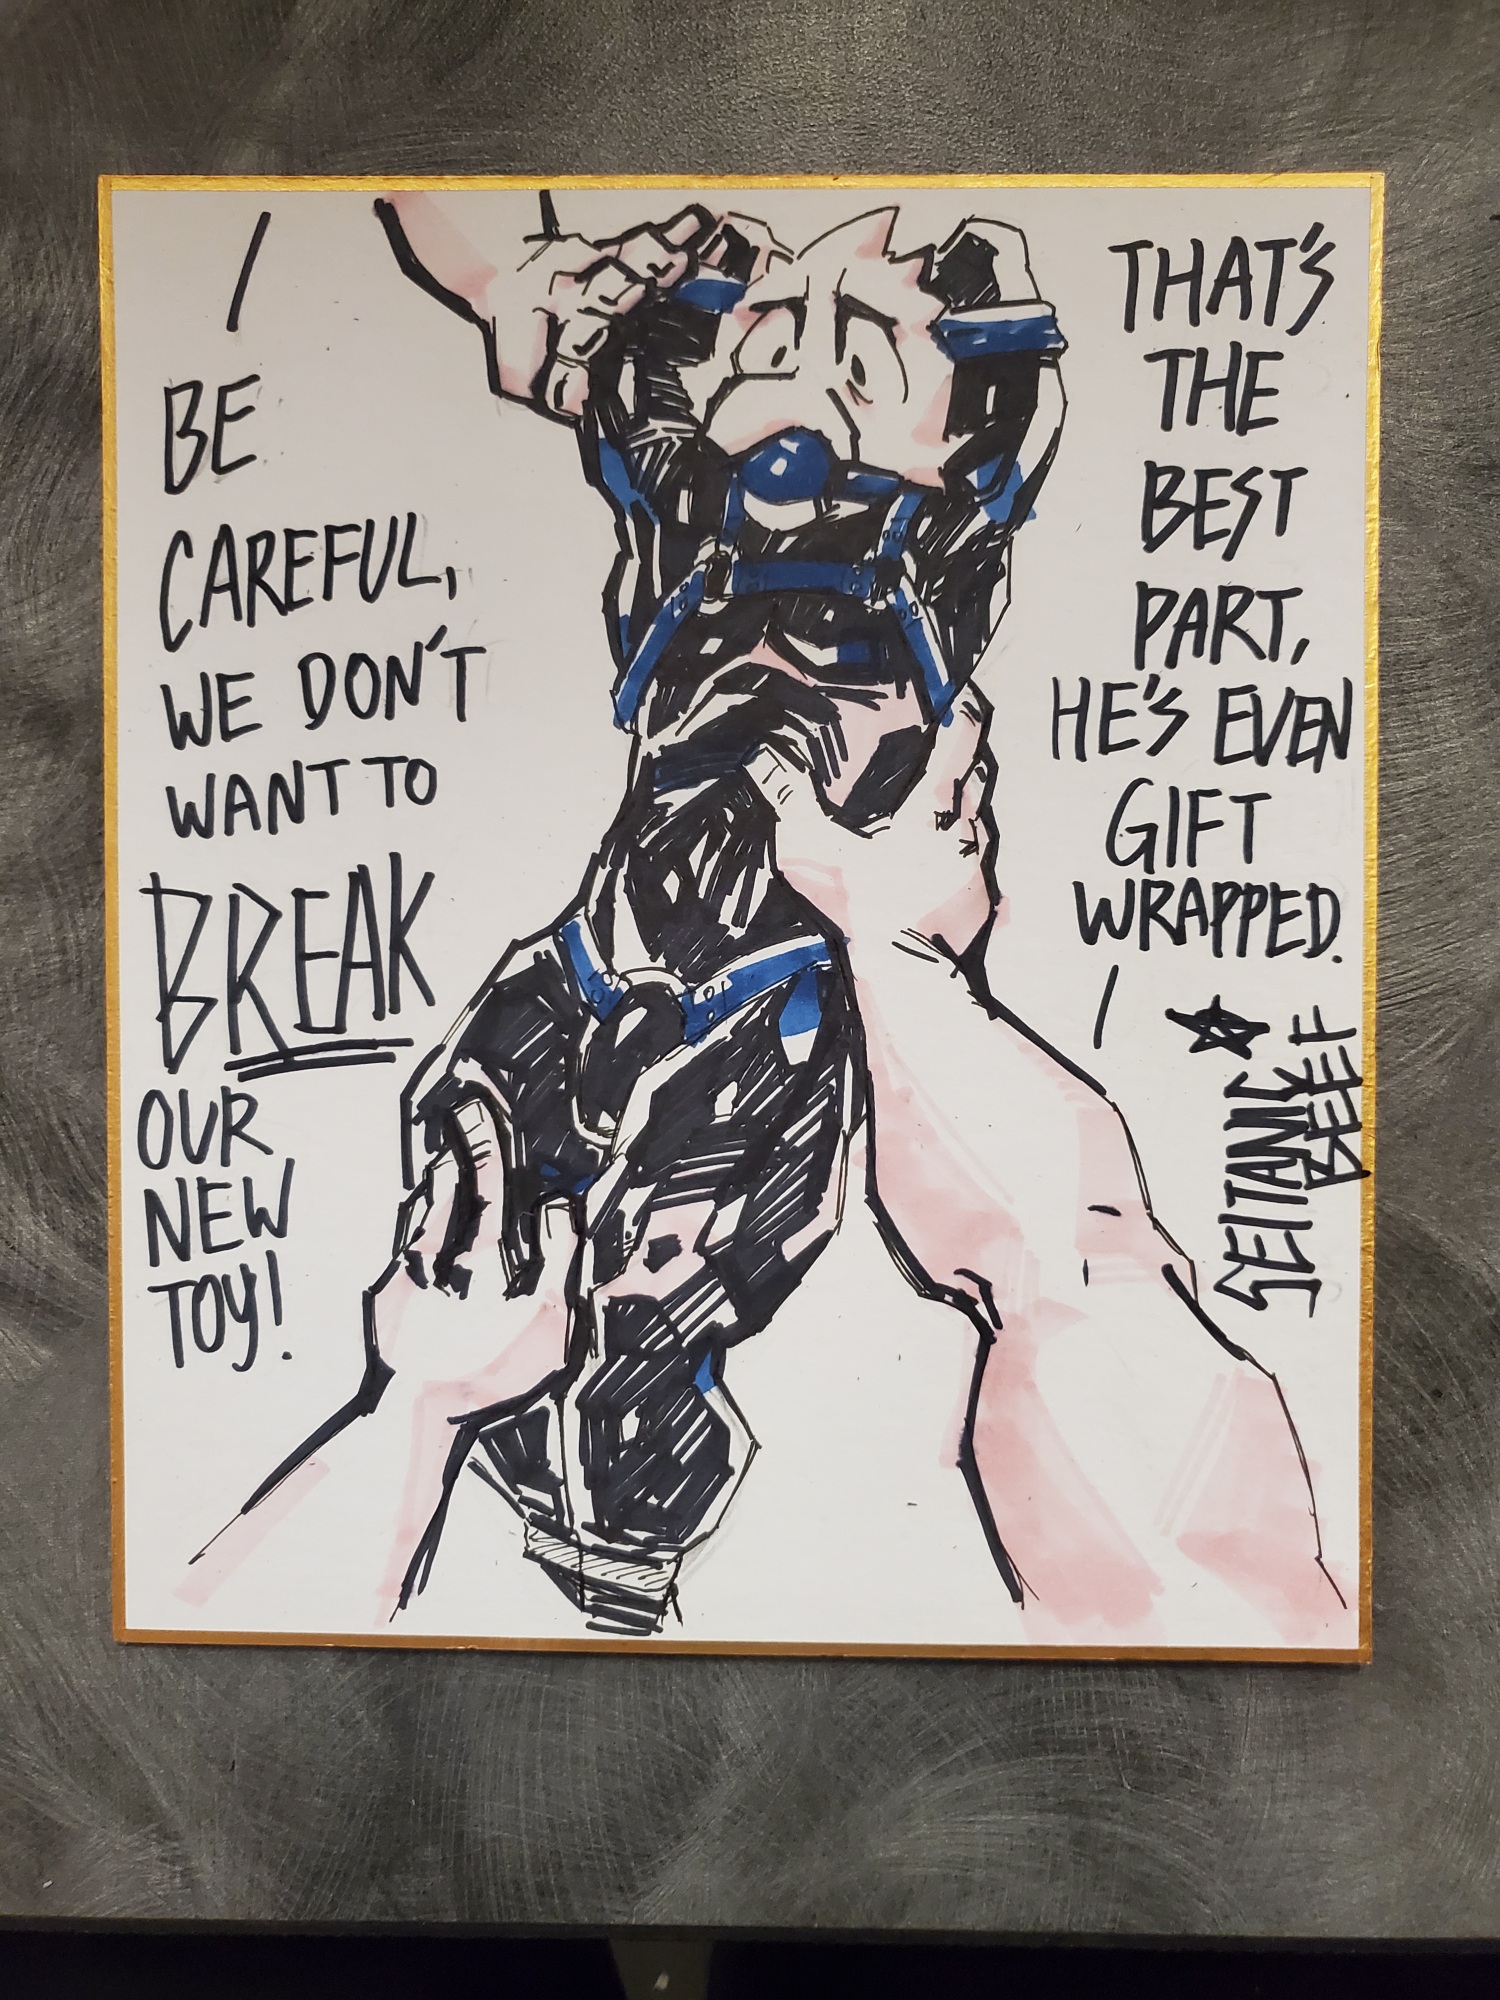 BE
CAREFUL,
WE DON'T
WANT TO
BREAK
OUR
NEW
TOY!
THAT'S
THE
BEST
PART,
HE'S EVEN
GIFT
WRAPPED.
SEITANIC
BEEF